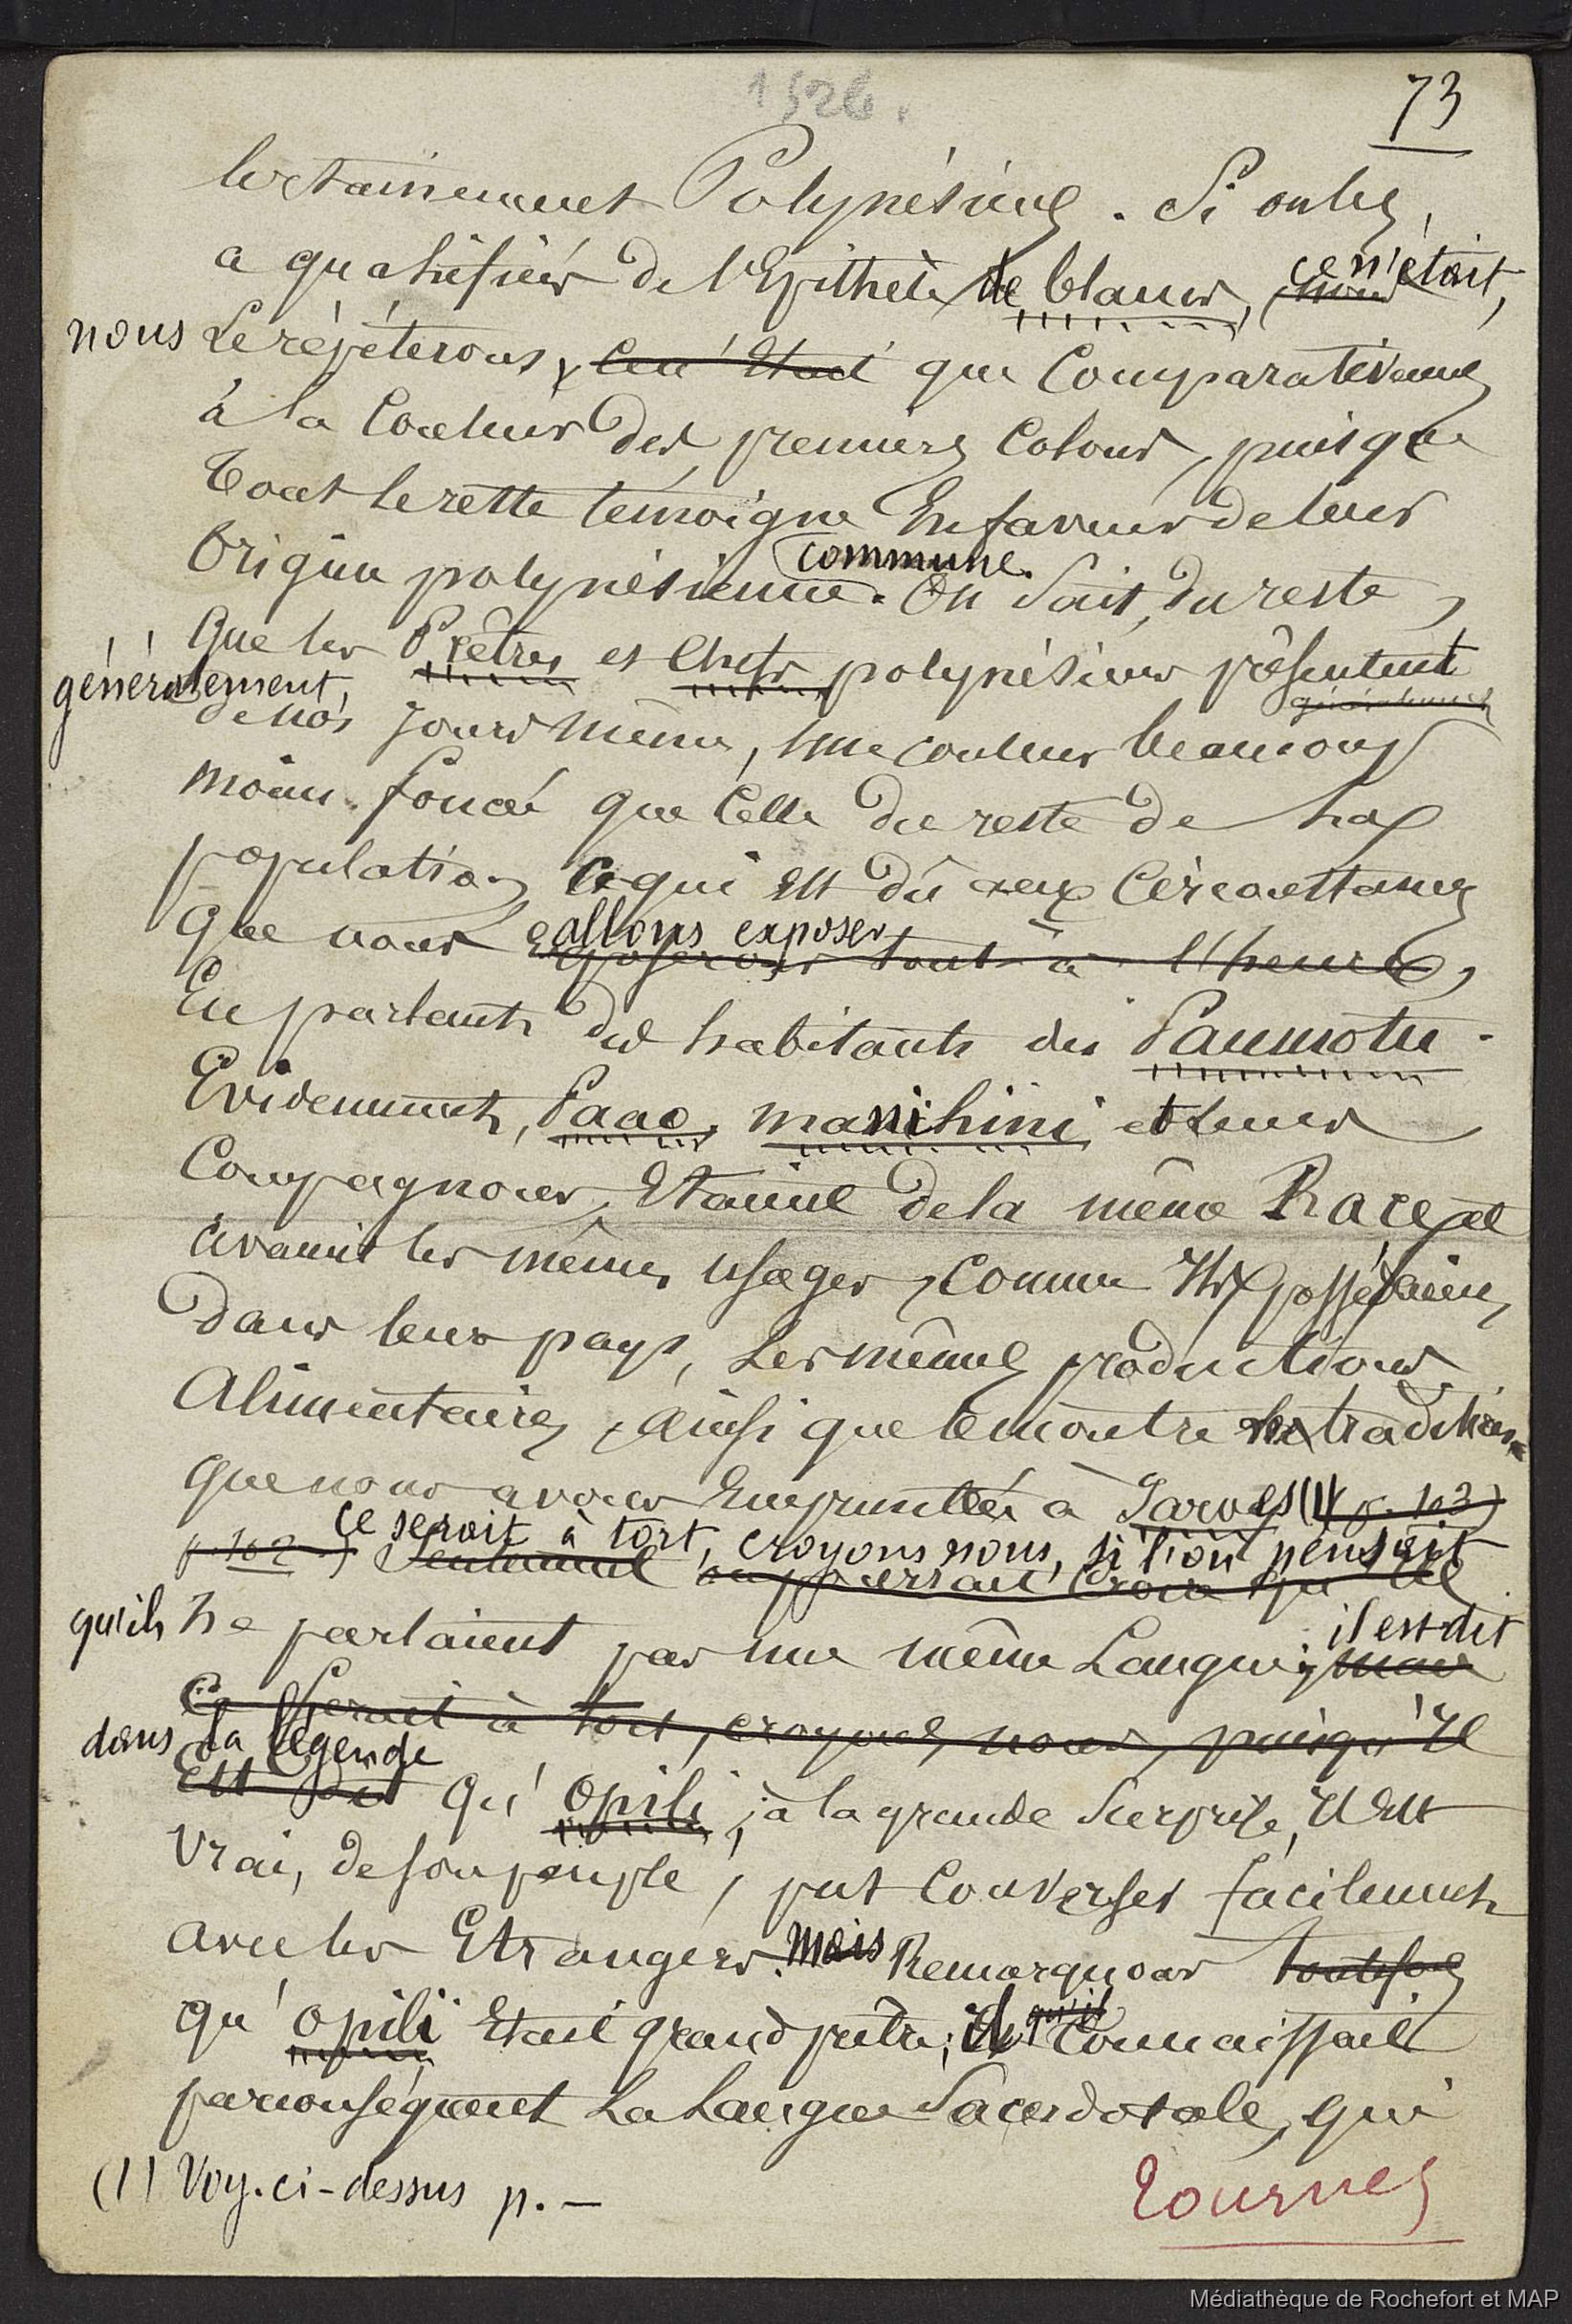 1526.
73
certainement Polynésiens. Si on les
a qualifiés de l'Epithète de blancs, ce n'était,
nous le répéterons, ce n'était que Comparativement
à la Couleur des premiers Colons, puisque
Tout le reste témoigne En faveur de leur
Origine polynésienne commune. On Sait, du reste,
Que les Prêtres et Chefs polynésiens présentent généralement
généralement,
de nos Jours même, une couleur beaucoup
moins foncée que Celle du reste de la
population, Ce qui Est dû aux Circonstances
Que nous allons exposer
exposerons tout à l'heure,
En parlant des habitants des Paumotu.
Evidemment, Paao, manihini et leurs
Compagnons, Etaient de la même Race, et
avaient les mêmes usages, Comme Ils possédaient,
Dans leur pays, Les mêmes productions
Alimentaires, Ainsi que le montre les traditions
Que nous avons Empruntées à Jarves (1) (p. 103)
p. 102) Ce serait à tort, croyons nous, si l'on pensait
Seulement on pourrait Croire qu'Ils
qu'ils ne parlaient pas une même Langue; il est dit
mais
Ce serait à tort, croyons nous, puisqu'Il
dans la légende
Est Dit Qu'Opili, à la grande Surprise, Il Est
Vrai, de son peuple, put Converser facilement
avec les Etrangers. mais Remarquons toutefois
qu'Opili Etait grand prêtre; il qu'il Connaissait
par conséquent La Langue Sacerdotale, qui
(1) Voy. ci-dessus p. —
Tournez
Médiathèque de Rochefort et MAP